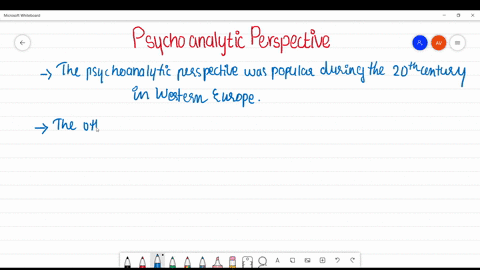 Microsoft Whiteboard
Psychoanalytic Perspective
AV
→ The psychoanalytic perspective was popular during the 20th century
in Western Europe.
→ The oth